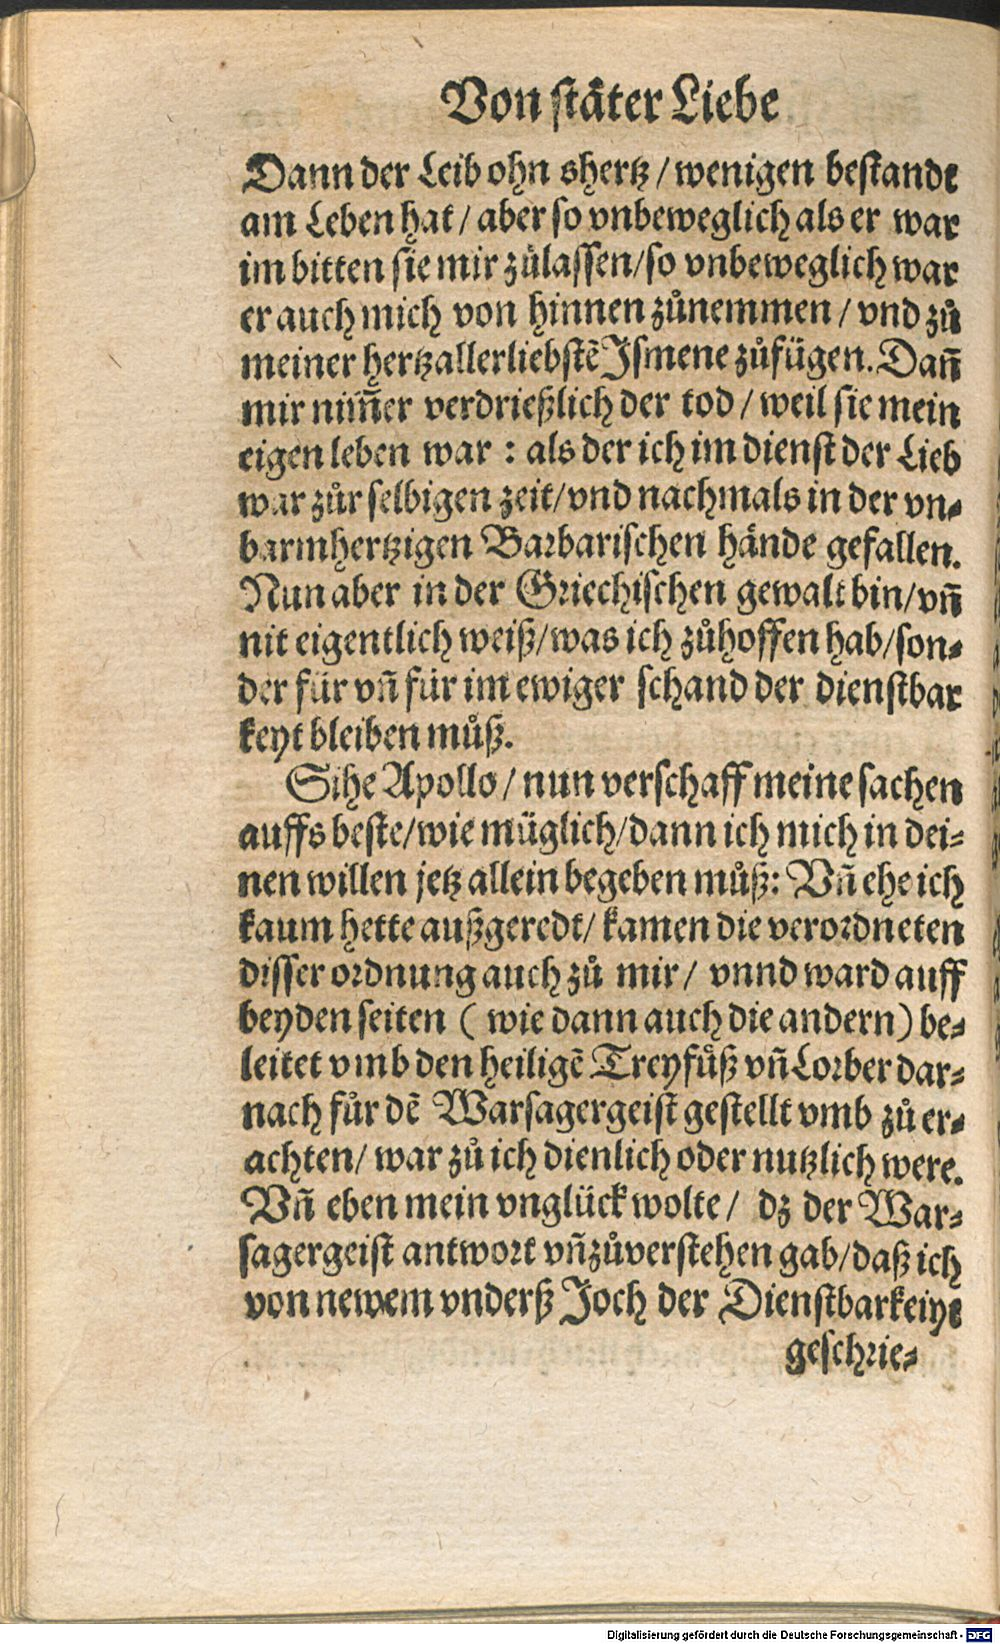 Von ſtäter Liebe
Dann der Leib ohn shertz / wenigen beſtande
am Leben hat / aber ſo vnbeweglich als er war
im bitten ſie mir zůlaſſen / ſo vnbeweglich war
er auch mich von hinnen zůnemmen / vnd zů
meiner hertzallerliebſtē Iſmene zůfügen. Dañ
mir nim̃er verdrießlich der tod / weil ſie mein
eigen leben war : als der ich im dienſt der Lieb
war zůr ſelbigen zeit / vnd nachmals in der vn-
barmhertzigen Barbariſchen hände gefallen.
Nun aber in der Griechiſchen gewalt bin / vñ
nit eigentlich weiß / was ich zůhoffen hab / ſon-
der für vñ für im ewiger ſchand der dienſtbar
keyt bleiben můß.
Sihe Apollo / nun verſchaff meine ſachen
auffs beſte / wie müglich / dann ich mich in dei-
nen willen jetz allein begeben můß: Vñ ehe ich
kaum hette außgeredt / kamen die verordneten
diſſer ordnung auch zů mir / vnnd ward auff
beyden ſeiten ( wie dann auch die andern ) be-
leitet vmb den heiligē Treyfůß vñ Lorber dar-
nach für dē Warſagergeiſt geſtellt vmb zů er-
achten / war zů ich dienlich oder nutzlich were.
Vñ eben mein vnglück wolte / dz der War-
ſagergeiſt antwort vñ zůverſtehen gab / daß ich
von newem vnderß Joch der Dienſtbarkeiyt
geſchrie-
Digitalisierung gefördert durch die Deutsche Forschungsgemeinschaft - DFG